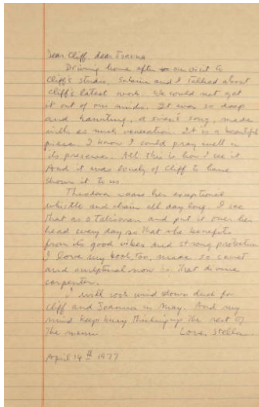 Dear Cliff, dear Joanna
Driving home after our visit to
Cliff's studio, Sabrina and I talked about
Cliff's latest work. We could not get
it out of our minds. It was so deep
and haunting, a swan's song, made
with so much veneration. It is a beautiful
piece. I know I could pray well in
its presence. All this is how I see it
And it was lovely of Cliff to have
shown it to me.
Theodora wears her sculptural
whistle and chain all day long. I see
that as a talisman and put it over her
head every day so that she benefits
from its good vibes and strong protection
I love my book too, made so
and sculptural now by that divine
carpenter.
I will cook wind down duck for
Cliff and Joanna in May. And my
mind keeps busy thinking up the rest of
the menu Love, Stella
April 14th 1977